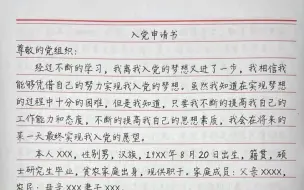 入党申请书
尊敬的党组织：
经过不断的学习，我离我入党的梦想又进了一步，我相信我
能够凭借自己的努力实现我入党的梦想。虽然我知道在实现梦想
的过程中十分的困难，但是我知道，只要我不断的提高我自己的
工作能力和态度，不断的提高我自己的思想素质，我会在将来的
某一天最终实现我入党的愿望。
本人XXX，性别男，汉族，19XX年8月20日出生，籍贯，硕
士研究生毕业，贫农家庭出身，现供职于，家庭成员：父亲XXXX，
农民，母亲XXX妻子XXX